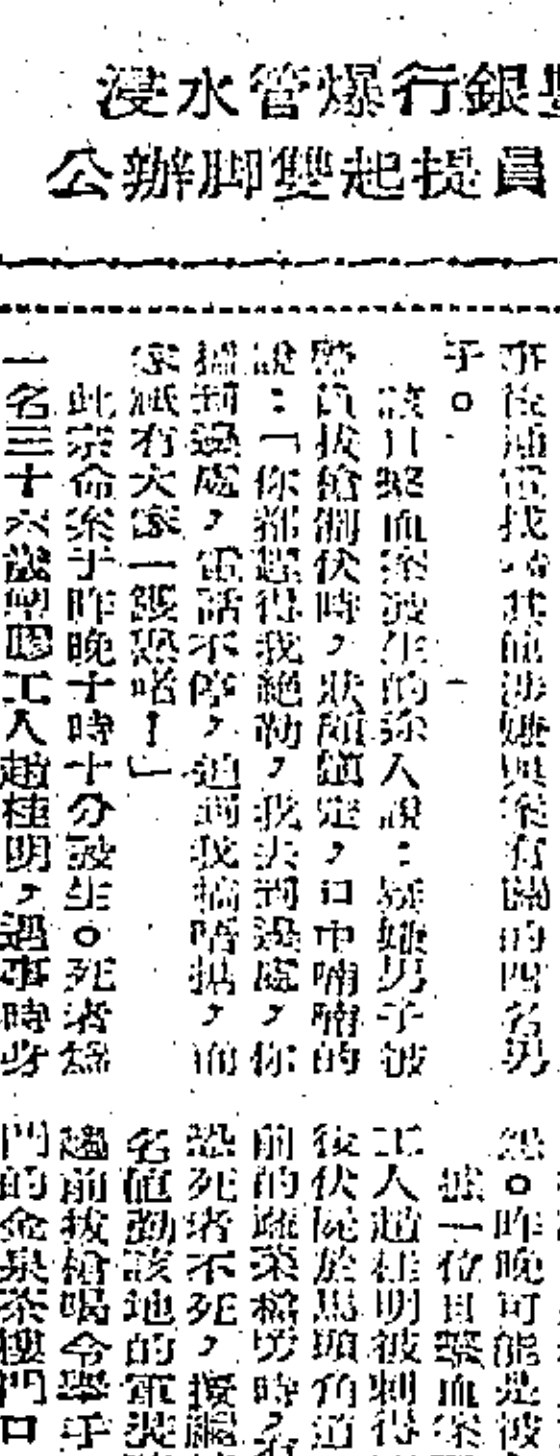 浸水管爆行銀
公辦脚雙起提員
事後通電找尋其他涉嫌與案有關的四名男
子。
該目擊血案發生的途人說：疑嫌男子被
警員拔槍制伏時，狀頗鎮定，口中喃喃的
說：「你都趕得我絕勒，我去到邊處，你
搵到邊處，電話不停，迫到我搞唔掂，而
家祇有大家一鑊熟啫！」
此宗命案于昨晚十時十分發生。死者爲
一名三十六歲塑膠工人趙桂明，遇事時身
怨。昨晚可能是被
據一位目擊血案
工人趙桂明被刺得
後伏屍於馬頭角道
前的蔬菜檔旁時，
恐死者不死，擬繼
名値勤該地的軍裝
趨前拔槍喝令舉手
門的金泉茶樓門口